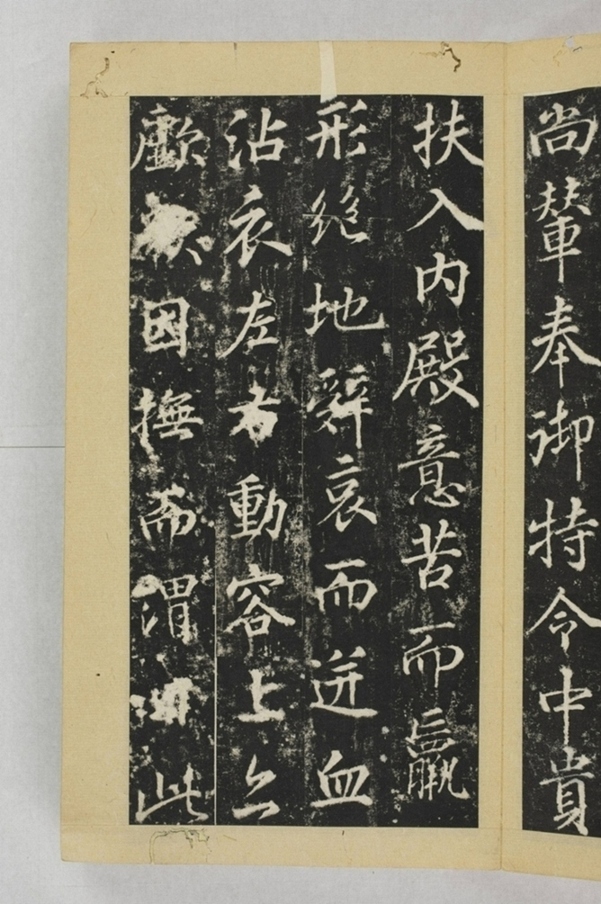 尚輦奉御特令中貴
扶入内殿意苦而羸
形絶地辭哀而迸血
沾衣左右動容上
歔因撫而謂此